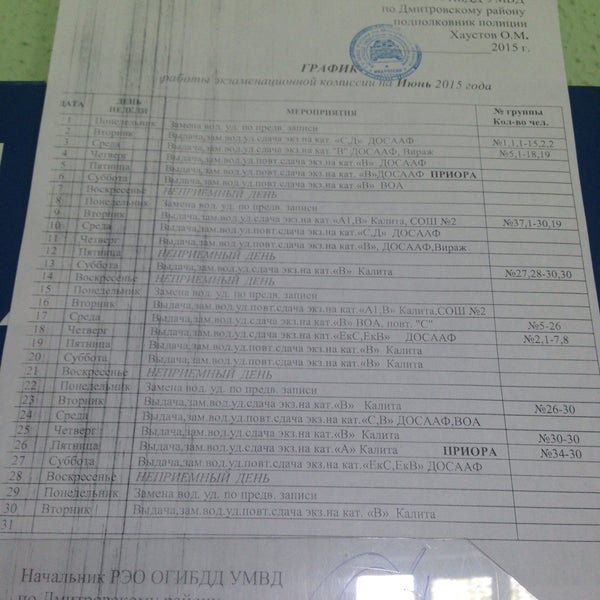 по Дмитровскому району
подполковник полиции
Хаустов О.М.
2015 г.
ГРАФИК
работы экзаменационной комиссии на Июнь 2015 года
ДАТА ДЕНЬ НЕДЕЛИ МЕРОПРИЯТИЯ № группы Кол-во чел.
1 Понедельник Замена вод. уд. по предв. записи
2 Вторник Выдача,зам.вод.уд.сдача экз.на кат. «С,Д» ДОСААФ №1,1,1-15,2,2
3 Среда Выдача,зам.вод.уд.сдача экз.на кат. "В" ДОСААФ, Вираж №5,1-18,19
4 Четверг Выдача,зам.вод.уд.повт.сдача экз.на кат.«В» ДОСААФ
5 Пятница Выдача,зам.вод.уд.повт.сдача экз.на кат. «В»ДОСААФ ПРИОРА
6 Суббота Выдача,зам.вод.уд.повт.сдача экз.на кат.«В» ВОА
7 Воскресенье НЕПРИЕМНЫЙ ДЕНЬ
8 Понедельник Замена вод. уд. по предв. записи
9 Вторник Выдача,зам.вод.уд.сдача экз.на кат.«А1,В» Калита, СОШ №2 №37,1-30,19
10 Среда Выдача,зам.вод.уд.сдача экз.на кат.«С,Д» ДОСААФ
11 Четверг Выдача,зам.вод.уд.повт.сдача экз.на кат.«В», ДОСААФ,Вираж
12 Пятница НЕПРИЕМНЫЙ ДЕНЬ
13 Суббота Выдача,зам.вод.уд.сдача экз.на кат.«В» Калита №27,28-30,30
14 Воскресенье НЕПРИЕМНЫЙ ДЕНЬ
15 Понедельник Замена вод. уд. по предв. записи
16 Вторник Выдача,зам.вод.уд.повт.сдача экз.на кат.«А1,В» Калита,СОШ №2
17 Среда Выдача,зам.вод.уд.сдача экз.на кат.«В» ВОА, повт. "С" №5-26
18 Четверг Выдача,зам.вод.уд.сдача экз.на кат.«ЕкС,ЕкВ» ДОСААФ №2,1-7,8
19 Пятница Выдача,зам.вод.уд.повт.сдача экз.на кат.«В» Калита
20 Суббота Выдача,зам.вод.уд.повт.сдача экз.на кат.«В» Калита
21 Воскресенье НЕПРИЕМНЫЙ ДЕНЬ
22 Понедельник Замена вод. уд. по предв. записи
23 Вторник Выдача,зам.вод.уд.сдача экз.на кат.«В» Калита №26-30
24 Среда Выдача,зам.вод.уд.повт.сдача экз.на кат.«С,В» ДОСААФ,ВОА
25 Четверг Выдача,зам.вод.уд.сдача экз.на кат.«В» Калита №30-30
26 Пятница Выдача,зам.вод.уд.сдача экз.на кат.«А» Калита ПРИОРА №34-30
27 Суббота Выдача,зам.вод.уд.повт.сдача экз.на кат.«ЕкС,ЕкВ» ДОСААФ
28 Воскресенье НЕПРИЕМНЫЙ ДЕНЬ
29 Понедельник Замена вод. уд. по предв. записи
30 Вторник Выдача,зам.вод.уд.повт.сдача экз.на кат. «В» Калита
31
Начальник РЭО ОГИБДД УМВД
по Дмитровскому району